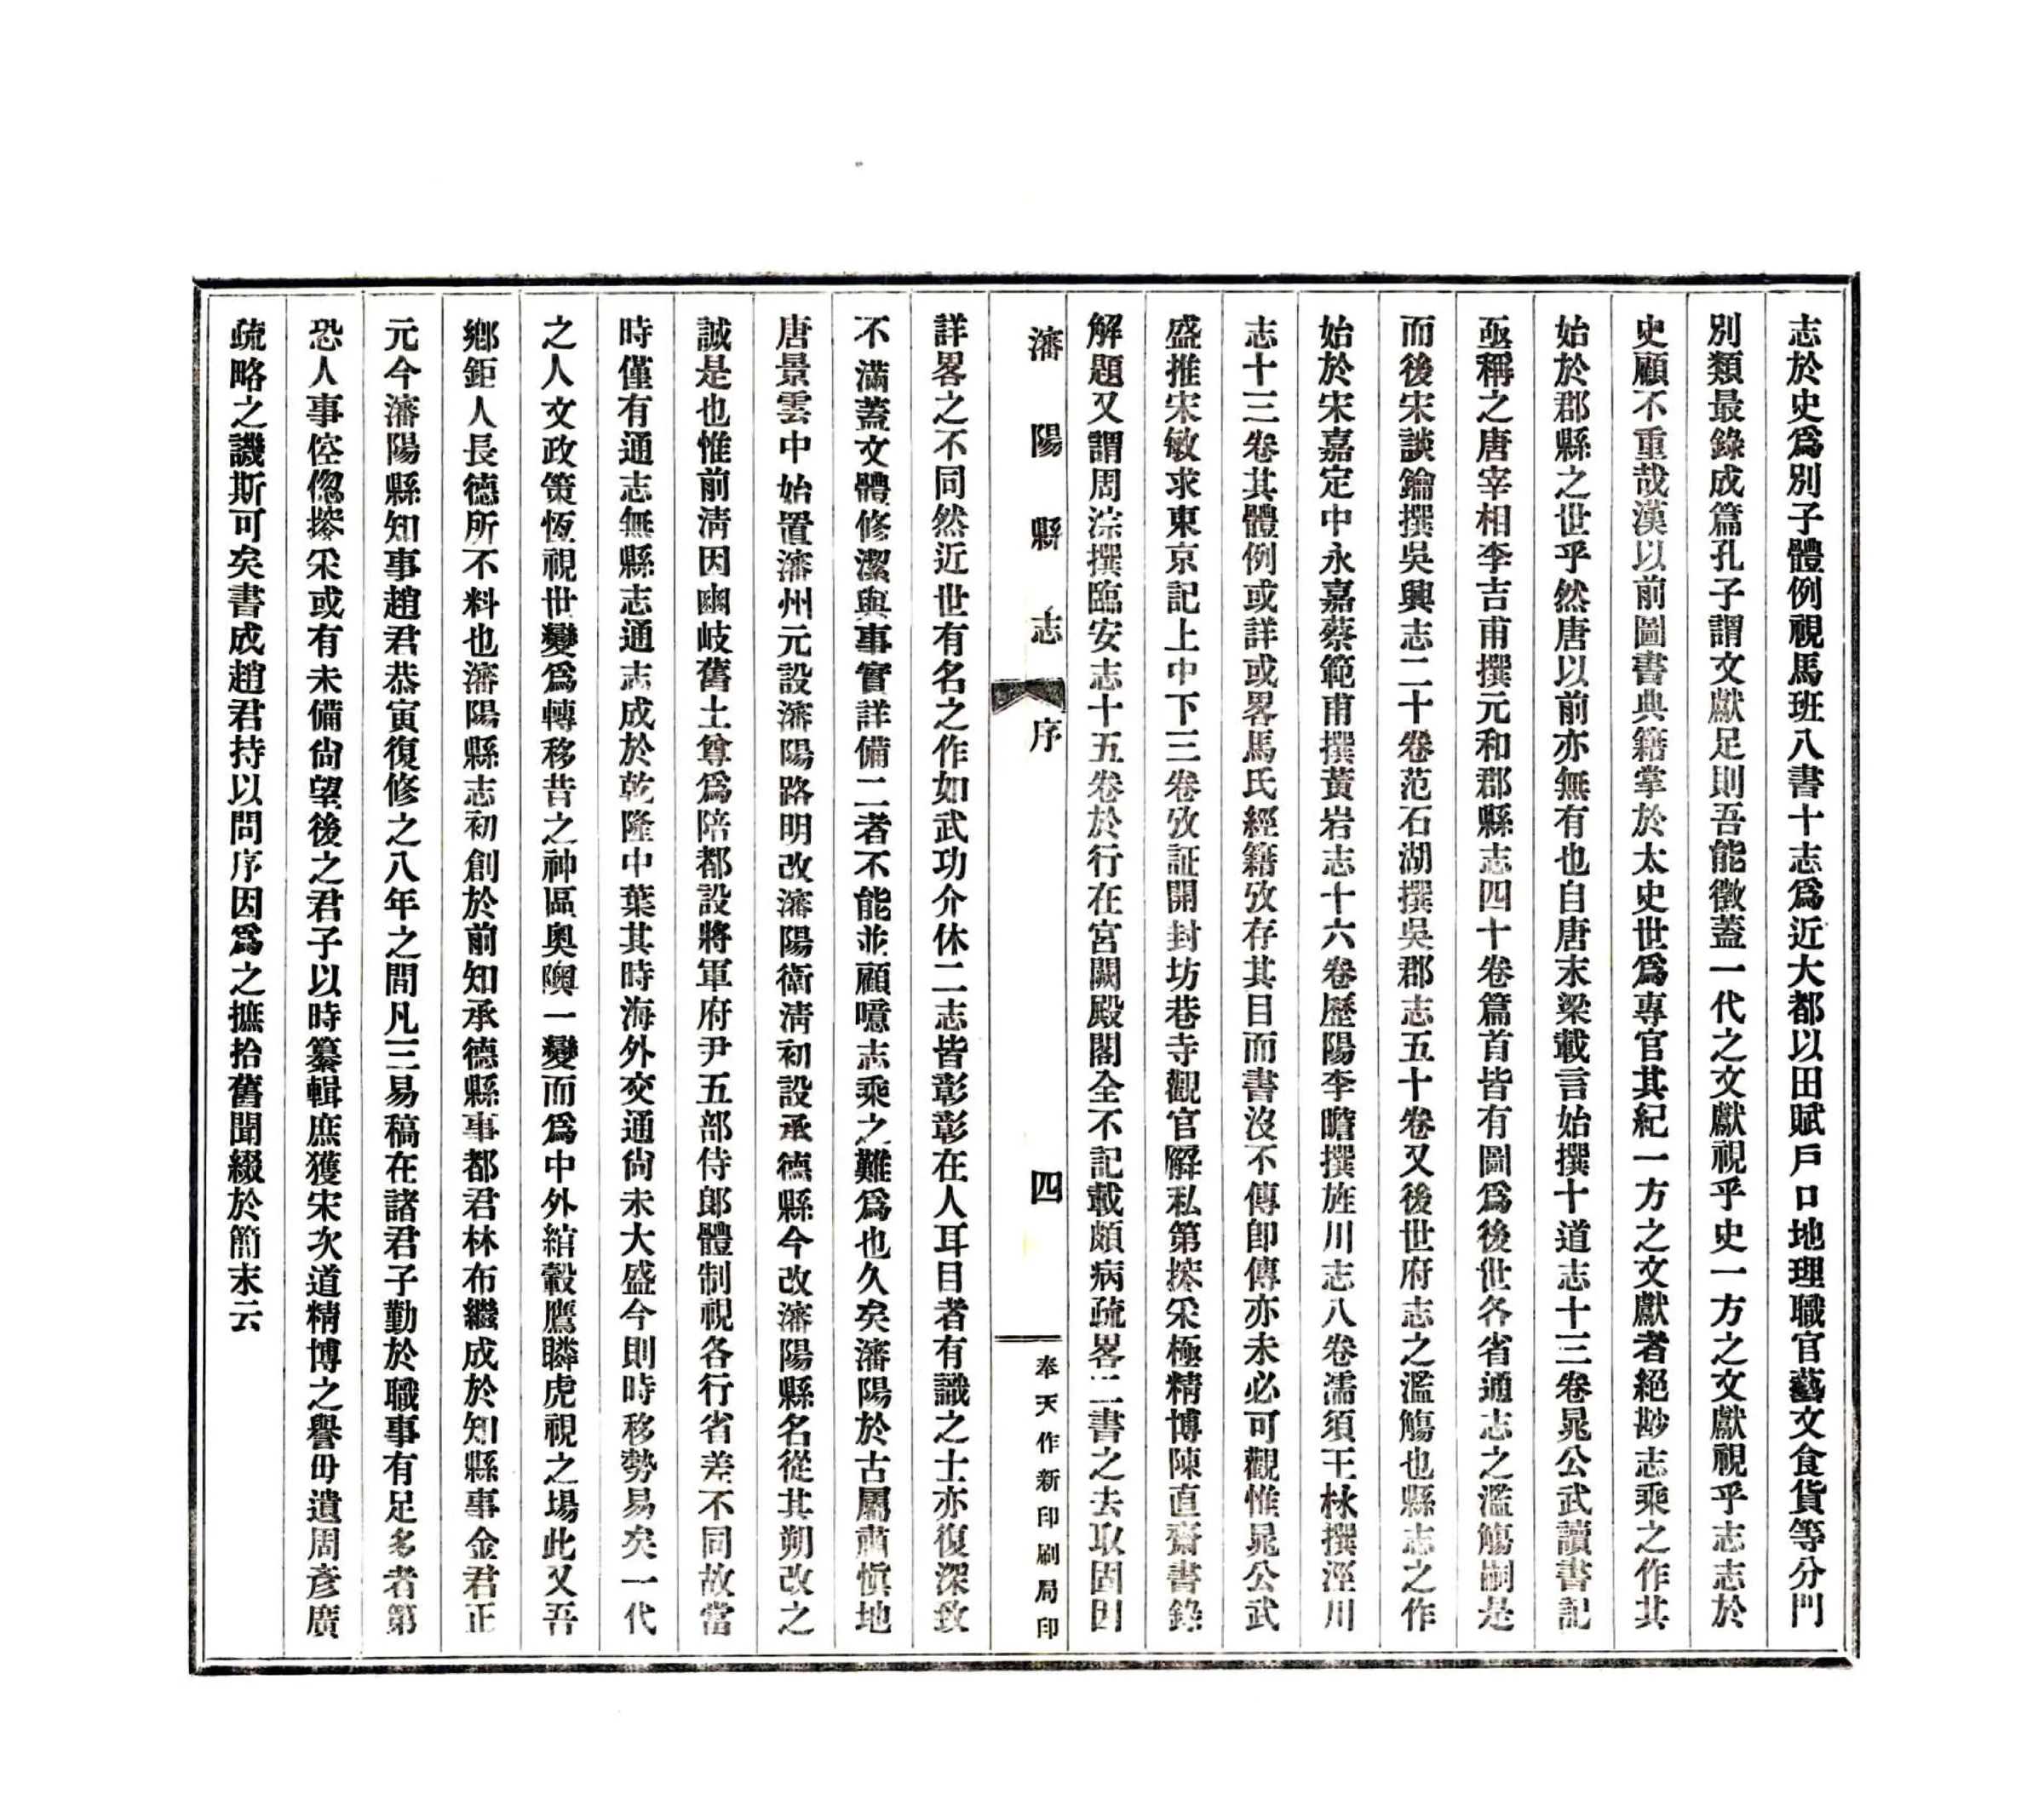 志於史爲別子體例視馬班八書十志爲近大都以田賦戶口地理職官藝文食貨等分門
別類最錄成篇孔子謂文獻足則吾能徵蓋一代之文獻視乎史一方之文獻視乎志志於
史顧不重哉漢以前圖書典籍掌於太史世爲專官其紀一方之文獻者絕尠志乘之作其
始於郡縣之世乎然唐以前亦無有也自唐末梁載言始撰十道志十三卷晁公武讀書記
亟稱之唐宰相李吉甫撰元和郡縣志四十卷篇首皆有圖爲後世各省通志之濫觴嗣是
而後宋談鑰撰吳興志二十卷范石湖撰吳郡志五十卷又後世府志之濫觴也縣志之作
始於宋嘉定中永嘉蔡範甫撰黃岩志十六卷歷陽李瞻撰旌川志八卷濡須王栐撰涇川
志十三卷其體例或詳或畧馬氏經籍攷存其目而書沒不傳卽傳亦未必可觀惟晁公武
盛推宋敏求東京記上中下三卷攷証開封坊巷寺觀官廨私第搽采極精博陳直齋書錄
解題又謂周淙撰臨安志十五卷於行在宮闕殿閣全不記載頗病疏畧二書之去取固因
瀋陽縣志 序 四 奉天作新印刷局印
詳畧之不同然近世有名之作如武功介休二志皆彰彰在人耳目者有識之士亦復深致
不滿蓋文體修潔與事實詳備二者不能並顧噫志乘之難爲也久矣瀋陽於古屬肅愼地
唐景雲中始置瀋州元設瀋陽路明改瀋陽衛淸初設承德縣今改瀋陽縣名從其朔改之
誠是也惟前淸因豳岐舊土尊爲陪都設將軍府尹五部侍郞體制視各行省差不同故當
時僅有通志無縣志通志成於乾隆中葉其時海外交通尙未大盛今則時移勢易矣一代
之人文政策恆視世變爲轉移昔之神區奧隩一變而爲中外綰轂鷹瞵虎視之場此又吾
鄕鉅人長德所不料也瀋陽縣志初創於前知承德縣事都君林布繼成於知縣事金君正
元今瀋陽縣知事趙君恭寅復修之八年之間凡三易稿在諸君子勤於職事有足多者第
恐人事倥偬搽采或有未備尙望後之君子以時纂輯庶獲宋次道精博之譽毋遺周彥廣
疏略之譏斯可矣書成趙君持以問序因爲之摭拾舊聞綴於簡末云